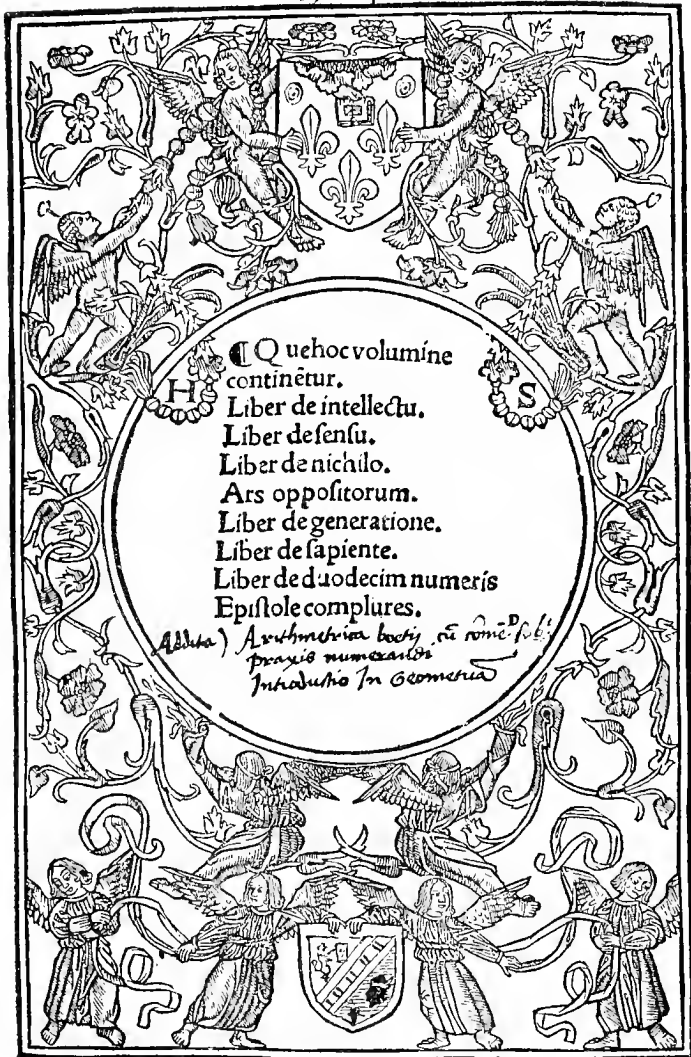 ¶ Que hoc volumine
continētur.
Liber de intellectu.
Liber de sensu.
Liber de nichilo.
Ars oppositorum.
Liber de generatione.
Liber de sapiente.
Liber de duodecim numeris
Epistole complures.
Addita) Arithmetrica boetij cū
praxis numerandi
Introductio In Geometriā
H S